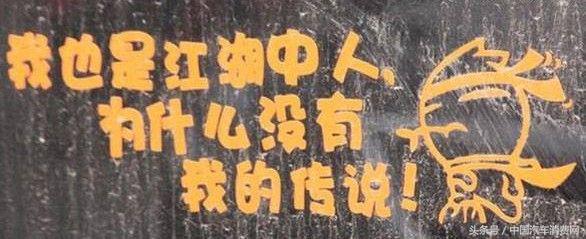 我也是江湖中人,
有什么没有
我的传说!
头条号/中国汽车消费网